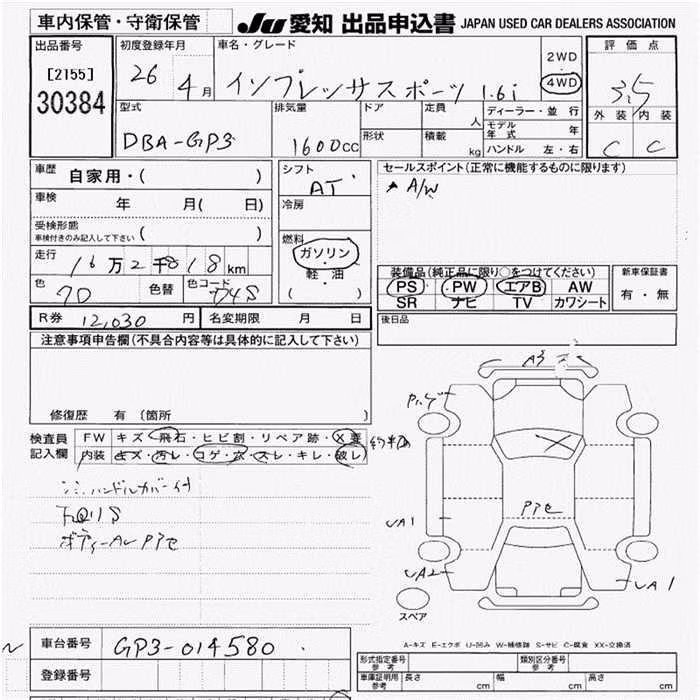 車内保管・守衛保管 JU 愛知 出品申込書 JAPAN USED CAR DEALERS ASSOCIATION
出品番号
[2155]
30384
初度登録年月
26 4月
車名・グレード
インプレッサスポーツ 1.6i
2WD
4WD
評価点
3.5
外装 内装
C C
型式
DBA-GP3
排気量
1600cc
ドア
形状
定員 人
積載 kg
ディーラー・並行
モデル年式 年
ハンドル 左・右
車歴 自家用・( )
車検 年 月( 日)
受検形態
車検付きのみ記入して下さい ( )
走行 16万2千818km
色 色替 色コード
D4S
シフト
AT
冷房
燃料
ガソリン
軽・油
( )
セールスポイント(正常に機能するものに限ります)
A/W
装備品(純正品に限り○をつけてください)
PS PW エアB AW
SR ナビ TV カワシート
新車保証書
有・無
R券 12,030円 名変期限 月 日
後日品
注意事項申告欄(不具合内容等は具体的に記入して下さい)
修復歴 有(箇所 )
検査員記入欄
FW キズ・飛石・ヒビ割・リペア跡・X要
内装 キズ・汚レ・コゲ・穴・スレ・キレ・破レ
ハンドルカバー付
A3
UA1
UA2
UA1
スペア
A-キズ E-エクボ U-凹み W-補修跡 S-サビ C-腐食 XX-交換済
車台番号 GP3-014580
登録番号
形式指定番号 参考
類別区分番号 参考
車庫証明用 参考 長さ cm 幅 cm 高さ cm